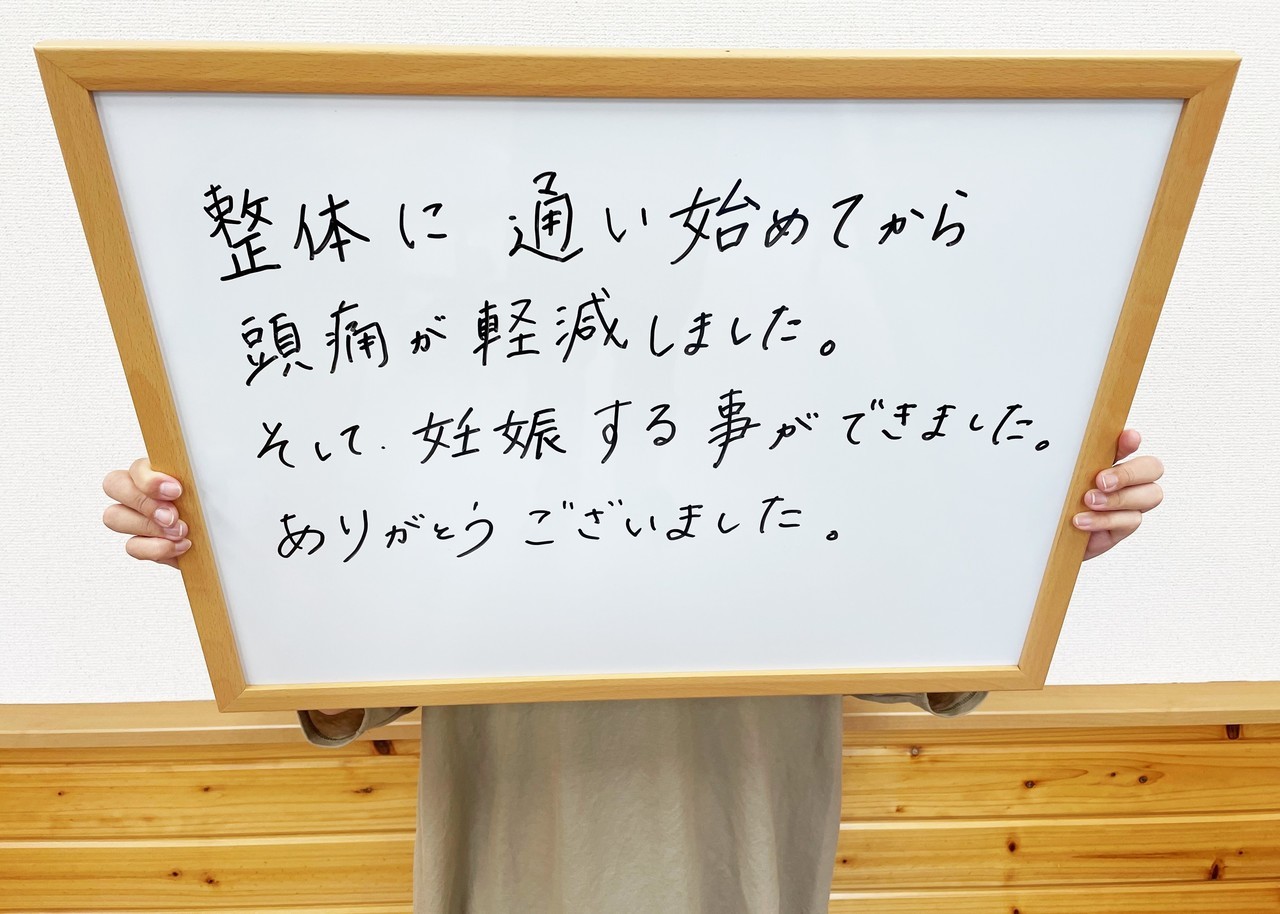 整体に通い始めてから
頭痛が軽減しました。
そして、妊娠する事ができました。
ありがとうございました。